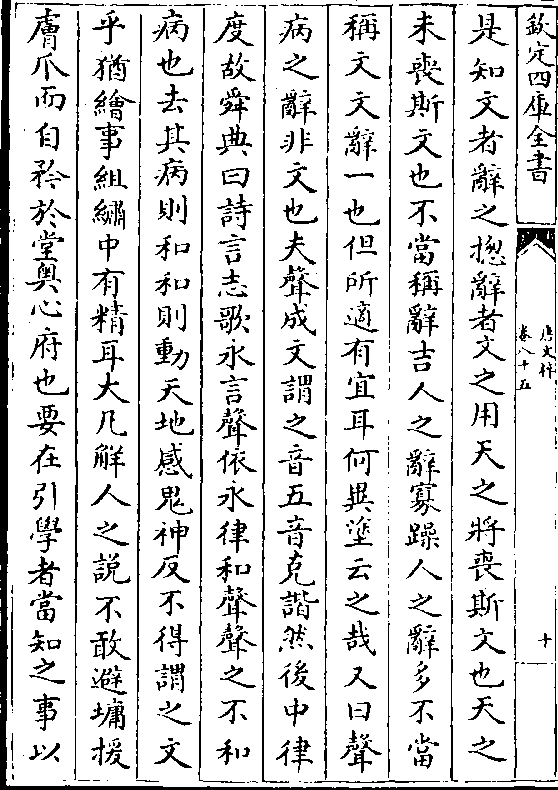 欽定四庫全書
唐文粹
卷八十五
十
是知文者辭之揔辭者文之用天之將喪斯文也天之
未喪斯文也不當稱辭吉人之辭寡躁人之辭多不當
稱文文辭一也但所適有宜耳何異塗云之哉又曰聲
病之辭非文也夫聲成文謂之音五音克諧然後中律
度故舜典曰詩言志歌永言聲依永律和聲聲之不和
病也去其病則和和則動天地感鬼神反不得謂之文
乎猶繪事組繡中有精耳大凡解人之說不敢避墉援
膚爪而自矜於堂奧心府也要在引學者當知之事以